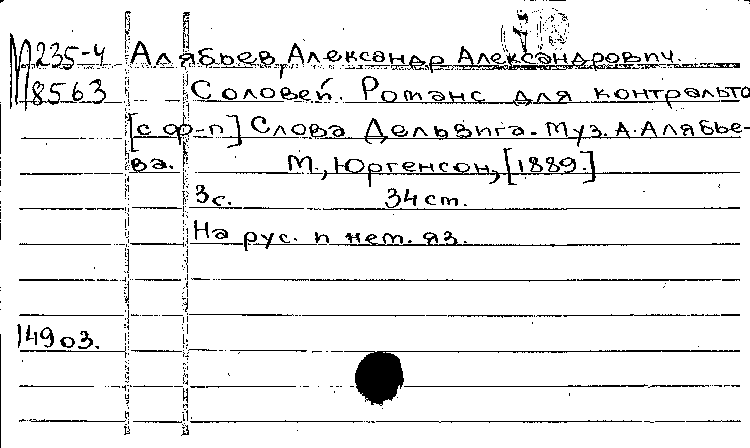 М 235-4 Алябьев, Александр Александрович.
8563 Соловей. Романс для контральто
[с ф-п] Слова Дельвига. Муз. А. Алябье-
ва. М., Юргенсон, [1889.]
3с. 34 cm.
На рус. и нем. яз.
14903.